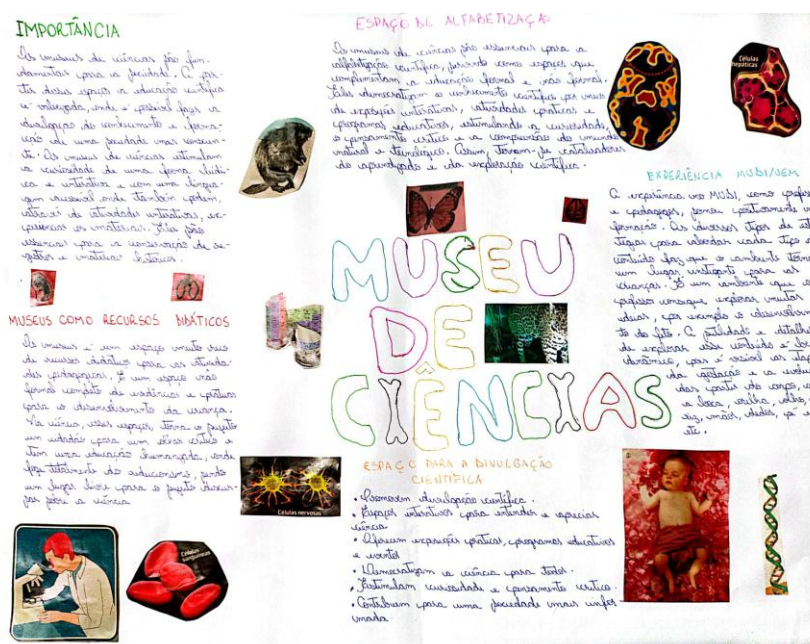 IMPORTÂNCIA
Os museus de ciências são fun-
damentais para a sociedade. A par-
tir desses espaços a educação científica
é valorizada, onde é possível fazer a
divulgação do conhecimento e forma-
ção de uma sociedade mais conscien-
te. Os museus de ciências estimulam
a curiosidade de uma forma lúdi-
ca e interativa e com uma lingua-
gem acessível onde também podem,
através de atividades interativas, ex-
perienciar os materiais. Eles são
essenciais para a conservação de
objetos e materiais históricos.
MUSEUS COMO RECURSOS DIDÁTICOS
Os museus é um espaço muito rico
de recursos didáticos para as ativida-
des pedagógicas. É um espaço não
formal completo de vivências e práticas
para o desenvolvimento da criança.
Na ciência, esses espaços, torna o sujeito
um cidadão para um olhar crítico e
tem uma educação humanizada, onde
faça totalmente do reducionismo, sendo
um lugar livre para o sujeito
sobre a ciência
Células sanguíneas
ESPAÇO DE ALFABETIZAÇÃO
Os museus de ciências são essenciais para a
alfabetização científica, servindo como espaços que
complementam a educação formal e não formal.
Eles democratizam o conhecimento científico por meio
de exposições interativas, atividades práticas e
programas educativos, estimulando a curiosidade,
o pensamento crítico e a compreensão do mundo
natural e tecnológico. Assim, tornam-se catalisadores
do aprendizado e da exploração científica.
Células hepáticas
MUSEU
DE
CIÊNCIAS
Células nervosas
ESPAÇO PARA A DIVULGAÇÃO
CIENTÍFICA
• Promovem divulgação científica.
• Espaços interativos para entender e apreciar
ciência
• Oferecem exposições práticas, programas educativos
e eventos
• Democratizam a ciência para todos.
• Estimulam curiosidade e pensamento crítico.
• Contribuem para uma sociedade mais infor
mada
EXPERIÊNCIA MUDI/UEM
A experiência no MUDI, como
e pedagogos, somou positivamente
formação. Os diversos tipos de
para abordar cada tipo
conteúdo faz que o ambiente
um lugar instigante para as
crianças. É um ambiente que
professor consegue explorar muitas
ideias, por exemplo o
to do feto. A
de explorar esse conteúdo é
dinâmico, pois é possível as
da gestação e a
das partes do corpo,
a boca, orelha,
mãos, dedos, pé
etc.